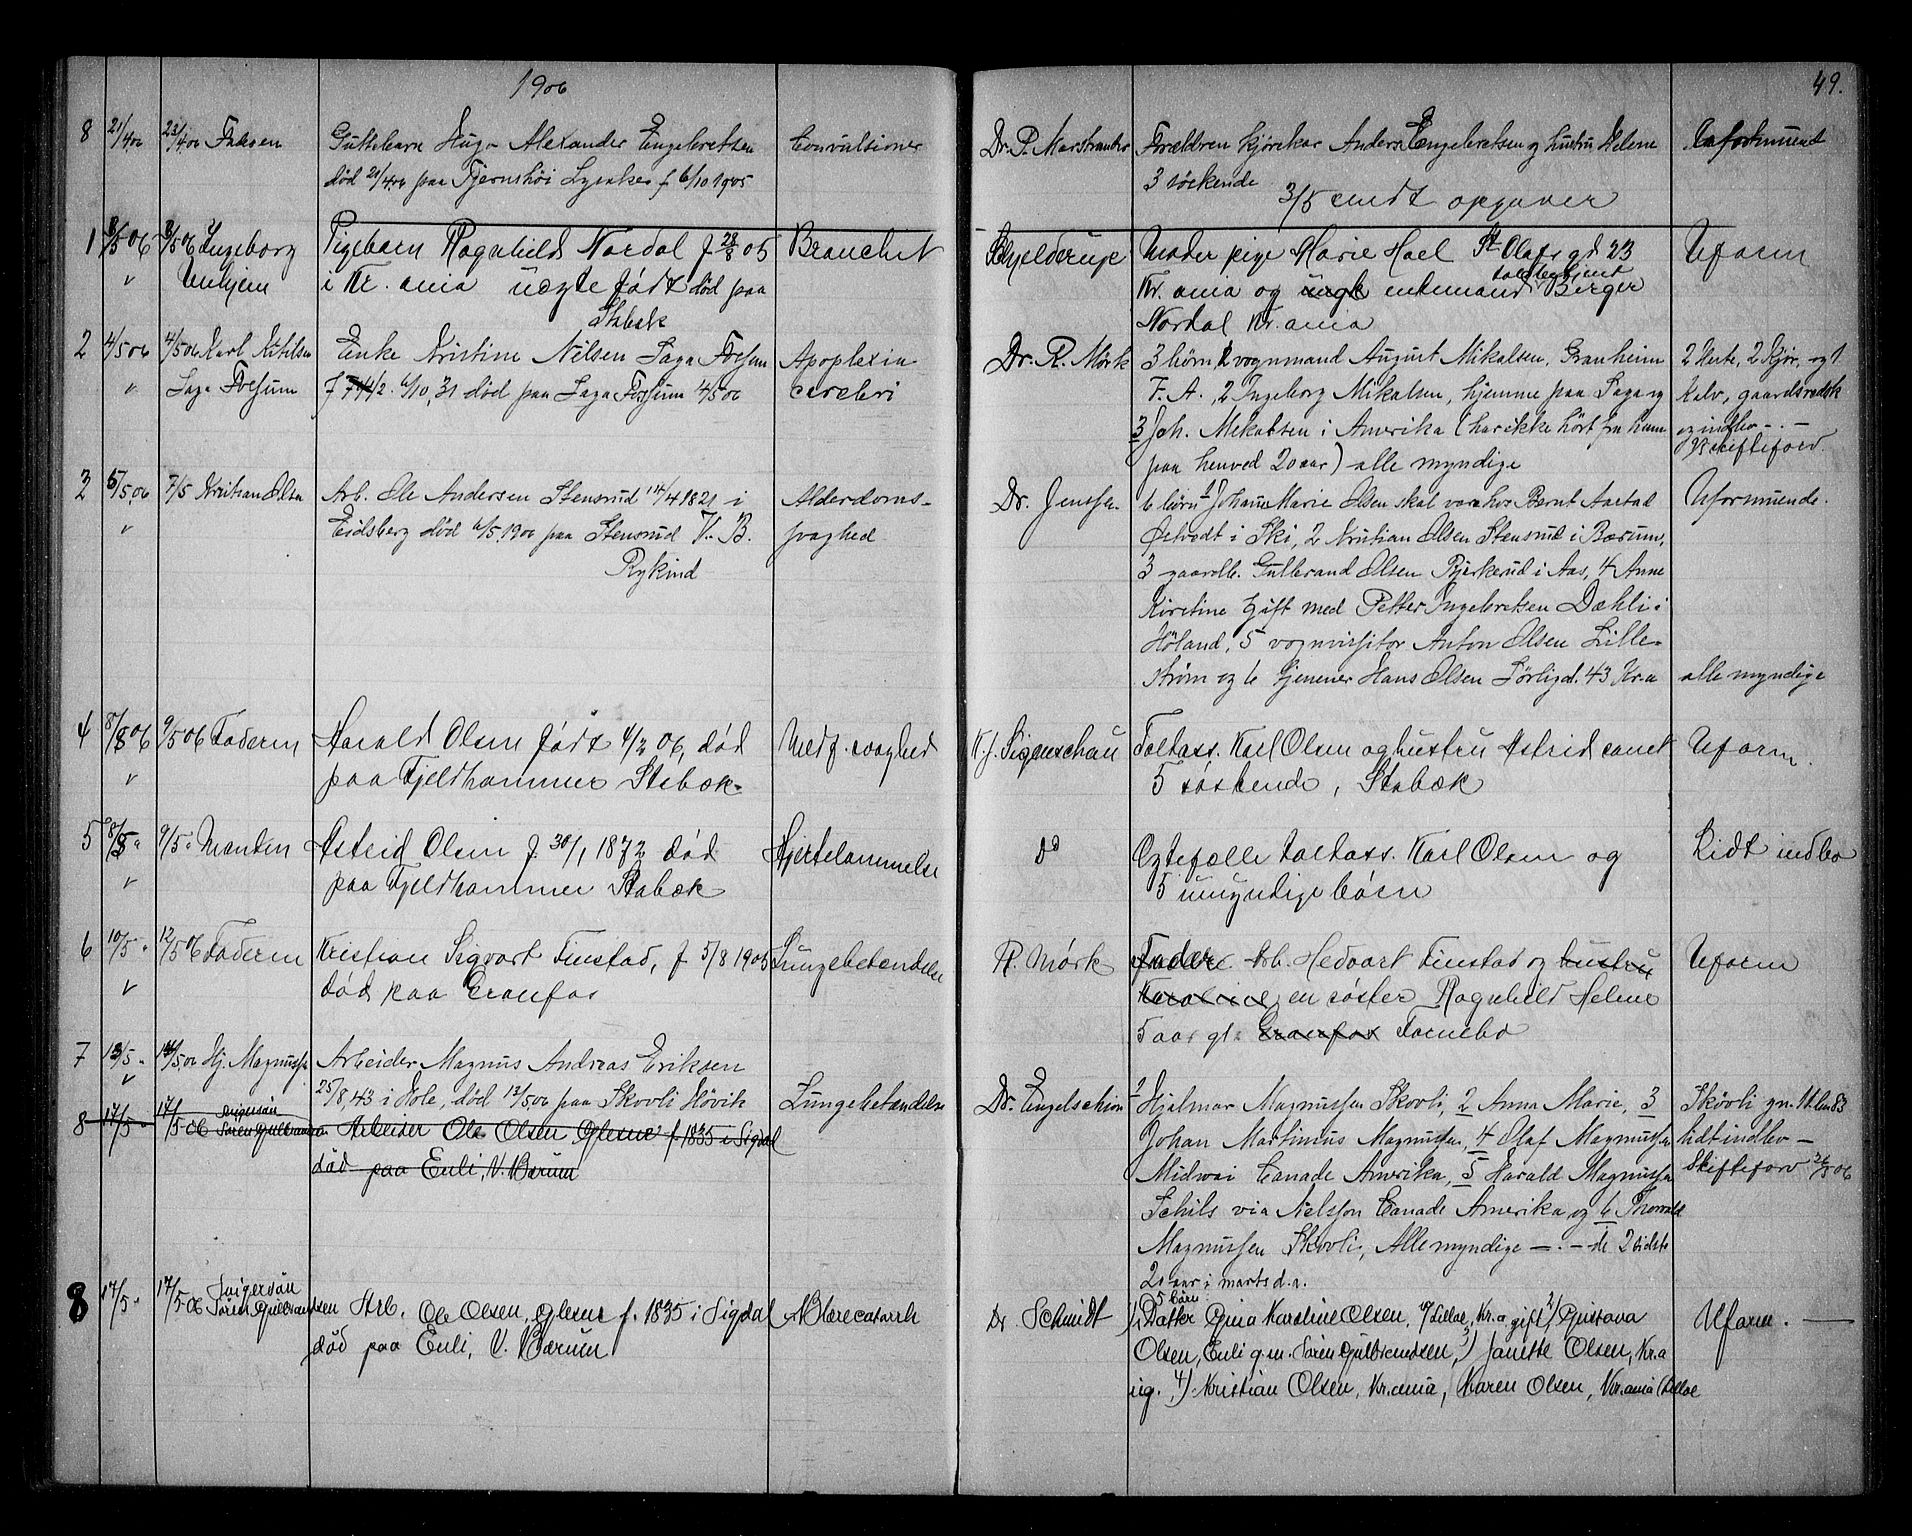 1906
49.
8 21/4 06 23/4 06 Faderen Guttebarn Hugo Alexander Engebretsen Convulsioner
død 21/4 06 paa Tjernshøi Lysaker f 6/10 1905
Dr. P. Marstrander Forældren kjørekar Anders Engebretsen og hustru Helene Uformuend
3 söskende
3/5 sendt opgaver
1 3/5 06 3/5 06 Ingeborg Pigebarn Ragnhild Nordal f 28/8 05 Bronchit
v Unhjem i Kr.ania uegte født død paa
Stabæk
Schjelderup Moder pige Marie Hoel St Olafs gd 23 Uform
Kr.ania og ungk enkemand toldbetjent Birger
Nordal Kr.ania
2 4/5 06 4/5 06 Karl Kitilsen Enke Kristine Nilsen Saga Fossum Apoplexia
v Saga Fossum f 6/10, 31 død paa Saga Fossum 4/5 06 cerebri
Dr. R. Mørk 3 børn 1 vognmand August Mikalsen, Granheim 2 Heste, 2 Kjör, og 1
V. A., 2 Ingeborg Mikalsen, hjemme paa Saga og Kalv, gaardsredsk
3 Joh. Mikalsen i Amerika (har ikke hört fra ham og indbo -.-
paa henved 20 aar) alle myndige Skifteforv.
3 6/5 06 7/5 Kristian Olsen Arb. Ole Andersen Stensrud 14/4 1821 i Alderdoms-
v Eidsberg död 6/5 1906 paa Stensrud V. B. svaghed
Rykind
Dr. Jenssen 6 börn 1 Johanne Marie Olsen skal være hos Bernt Aastad Uformuende.
Østvedt i Ski, 2 Kristian Olsen Stensrud i Bærum,
3 gaardb. Gulbrand Olsen Bjerkerud i Aas, 4 Anne
Kirstine gift med Petter Ingebretsen Dæhli i
Höland, 5 vognvisitør Anton Olsen Lille-
ström og 6 tjener Hans Olsen Sörligd. 43 Kr.a alle myndige
4 8/5 06 9/5 06 Faderen Harald Olsen født 4/2 06, død Medf. svaghed
v paa Fjeldhammer Stabæk.
K.J. Sigenschau Toldass. Karl Olsen og hustru Astrid samt Uform.
5 søskende, Stabæk
5 8/5 " 9/5 " Manden Astrid Olsen f. 30/1 1872 død Hjertelammelse
v paa Fjeldhammer Stabæk
Do Egtefælle toldass. Karl Olsen og Lidt indbo
5 umyndige børn
6 10/5 " 12/5 06 Faderen Kristian Sigvart Finstad, f 5/8 1905 Lungebetændelse
v død paa Granfos
R. Mørk Fader Arb. Hedvart Finstad og hustru Uform
Karoline en søster Ragnhild Helene
5 aar gl. Granfos Fornebo
7 13/5 " 14/5 06 Hj. Magnussen Arbeider Magnus Andreas Eriksen
v 25/8, 43 i Hole, død 13/5, 06 paa Skovli Hövik Lungebetændelse
Dr. Engelschiøn 1 Hjalmar Magnussen Skovli, 2 Anna Marie, 3 Skövli gn. 11 bn 83
Johan Martinius Magnussen, 4 Olaf Magnussen lidt indbo -
Midwai Canade Amerika, 5 Harald Magnussen Skifteforv 26/5 06
Schils via Nelsson Canade Amerika og 6 Thorvald
Magnussen Skovli, Alle myndige -.- de 2 sidste
20 aar i marts d.a.
8 17/5 17/5 06 Svigersøn Søren Gulbrandsen Arbeider Ole Olsen, Glesne f. 1835 i Sigdal
død paa Enli, V. Bærum
8 17/5 " 17/5 06 Svigersøn Søren Gulbrandsen Arb. Ole Olsen, Glesne f. 1835 i Sigdal Blærecatarrh
død paa Enli, V. Bærum
Dr. Schmidt 5 børn 1) Datter Gina Karoline Olsen, Kr.a gift 2) Gustava Uform. —
Olsen, Enli g.m. Søren Gulbrandsen, 3) Janette Olsen, Kr.a
ug. 4) Kristian Olsen, Kr.ania, Karen Olsen, Kr.ania